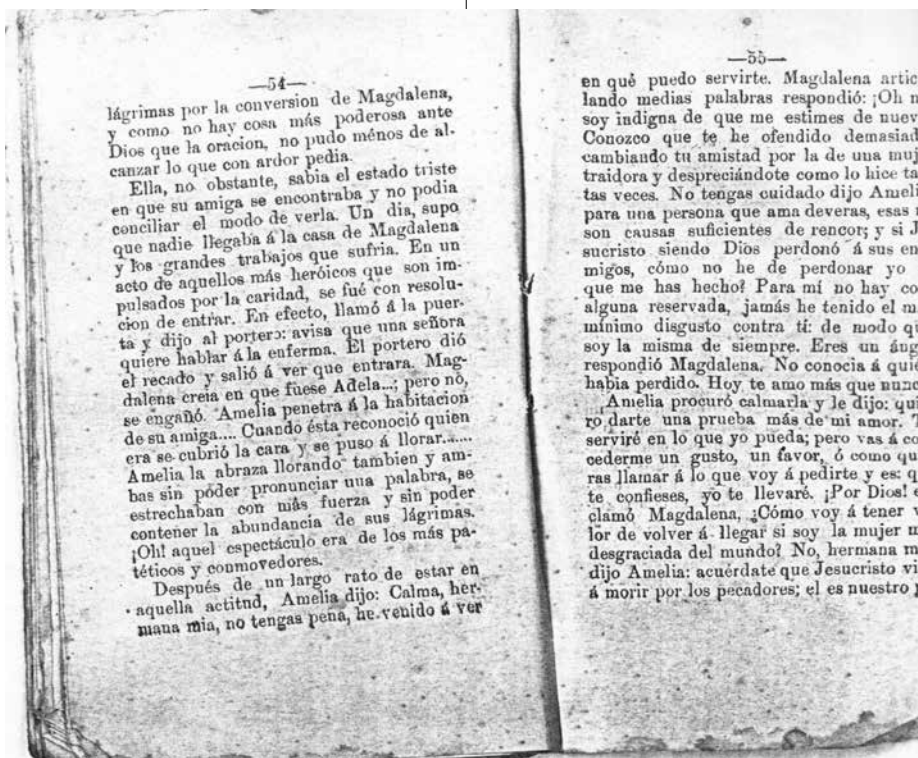 —54—
lágrimas por la conversion de Magdalena,
y como no hay cosa más poderosa ante
Dios que la oracion, no pudo ménos de al-
canzar lo que con ardor pedia.
Ella, no obstante, sabia el estado triste
en que su amiga se encontraba y no podia
conciliar el modo de verla. Un dia, supo
que nadie llegaba á la casa de Magdalena
y los grandes trabajos que sufria. En un
acto de aquellos más heróicos que son im-
pulsados por la caridad, se fué con resolu-
cion de entrar. En efecto, llamó á la puer-
ta y dijo al portero: avisa que una señora
quiere hablar á la enferma. El portero dió
el recado y salió á ver que entrara. Mag-
dalena creia en que fuese Adela...; pero nó,
se engañó. Amelia penetra á la habitacion
de su amiga.... Cuando ésta reconoció quien
era se cubrió la cara y se puso á llorar......
Amelia la abraza llorando tambien y am-
bas sin poder pronunciar una palabra, se
estrechaban con más fuerza y sin poder
contener la abundancia de sus lágrimas.
¡Oh! aquel espectáculo era de los más pa-
téticos y conmovedores.
Después de un largo rato de estar en
aquella actitnd, Amelia dijo: Calma, her-
mana mia, no tengas pena, he venido á ver
—55—
en qué puedo servirte. Magdalena artic
lando medias palabras respondió: ¡Oh n
soy indigna de que me estimes de nuev
Conozco que te he ofendido demasiad
cambiando tu amistad por la de una muj
traidora y despreciándote como lo hice ta
tas veces. No tengas cuidado dijo Ameli
para una persona que ama deveras, esas n
son causas suficientes de rencor; y si J
sucristo siendo Dios perdonó á sus en
migos, cómo no he de perdonar yo
que me has hecho? Para mí no hay co
alguna reservada, jamás he tenido el m
mínimo disgusto contra tí: de modo q
soy la misma de siempre. Eres un áng
respondió Magdalena. No conocia á quie
habia perdido. Hoy te amo más que nunc
Amelia procuró calmarla y le dijo: qui
ro darte una prueba más de mi amor. T
serviré en lo que yo pueda; pero vas á co
cederme un gusto, un favor, ó como qu
ras llamar á lo que voy á pedirte y es: q
te confieses, yo te llevaré. ¡Por Dios! e
clamó Magdalena, ¿Cómo voy á tener v
lor de volver á llegar si soy la mujer m
desgraciada del mundo? No, hermana m
dijo Amelia: acuérdate que Jesucristo vi
á morir por los pecadores; el es nuestro